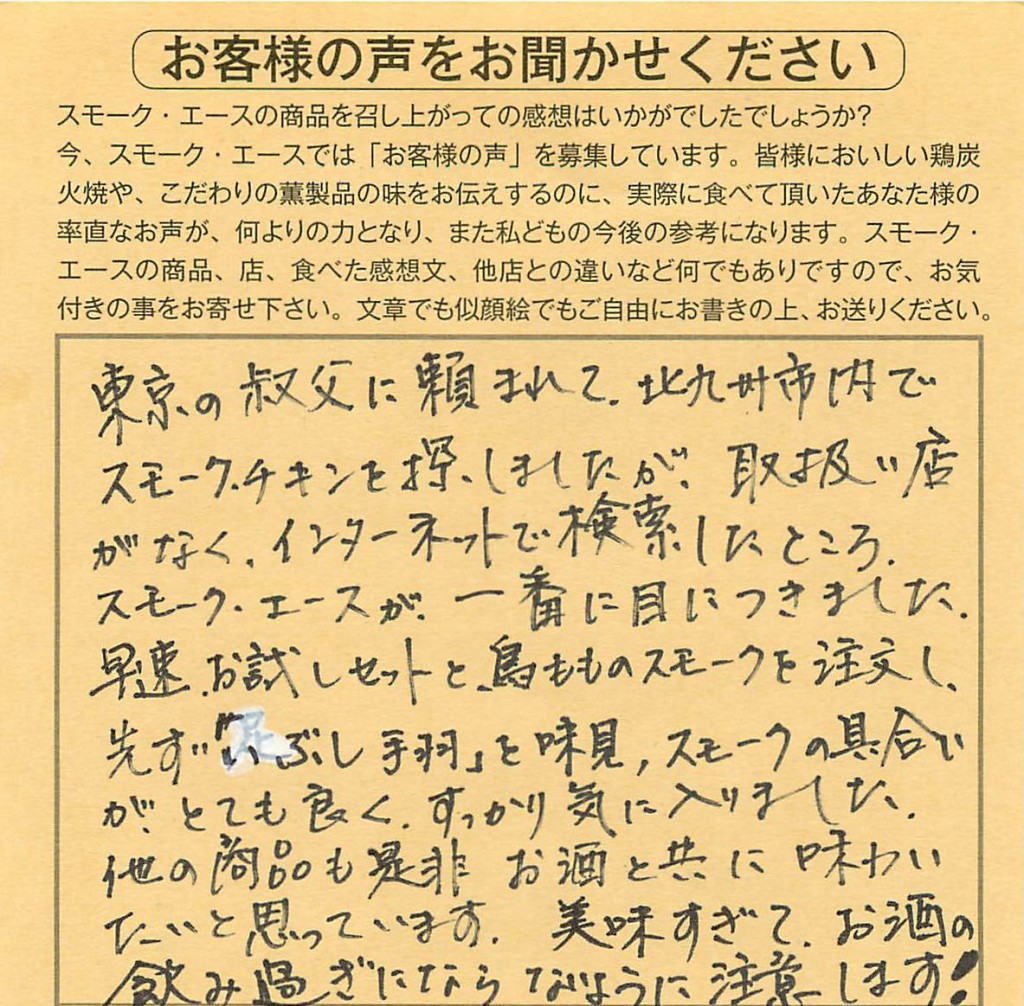 お客様の声をお聞かせください
スモーク・エースの商品を召し上がっての感想はいかがでしたでしょうか?
今、スモーク・エースでは「お客様の声」を募集しています。皆様においしい鶏炭
火焼や、こだわりの薫製品の味をお伝えするのに、実際に食べて頂いたあなた様の
率直なお声が、何よりの力となり、また私どもの今後の参考になります。スモーク・
エースの商品、店、食べた感想文、他店との違いなど何でもありですので、お気
付きの事をお寄せ下さい。文章でも似顔絵でもご自由にお書きの上、お送りください。
東京の叔父に頼まれて、北九州市内で
スモークチキンを探しましたが、取扱い店
がなく、インターネットで検索したところ、
スモーク・エースが、一番に目につきました。
早速、お試しセットと、鳥もものスモークを注文し、
先ず「いぶし手羽」を味見、スモークの具合い
が、とても良く、すっかり気に入りました。
他の商品も是非 お酒と共に味わい
たいと思っています。 美味すぎて、お酒の
飲み過ぎにならないように注意します!